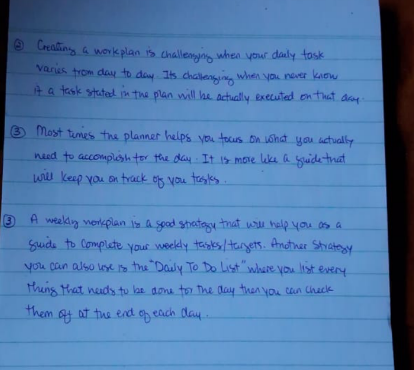 ② Creating a workplan is challenging when your daily task
varies from day to day. Its challenging when you never know
if a task stated in the plan will be actually executed on that day.
③ Most times the planner helps you focus on what you actually
need to accomplish for the day. It is more like a guide that
will keep you on track of you tasks.
③ A weekly workplan is a good strategy that will help you as a
guide to complete your weekly tasks/targets. Another strategy
you can also use is the "Daily To Do List" where you list every
thing that needs to be done for the day then you can check
them off at the end of each day.